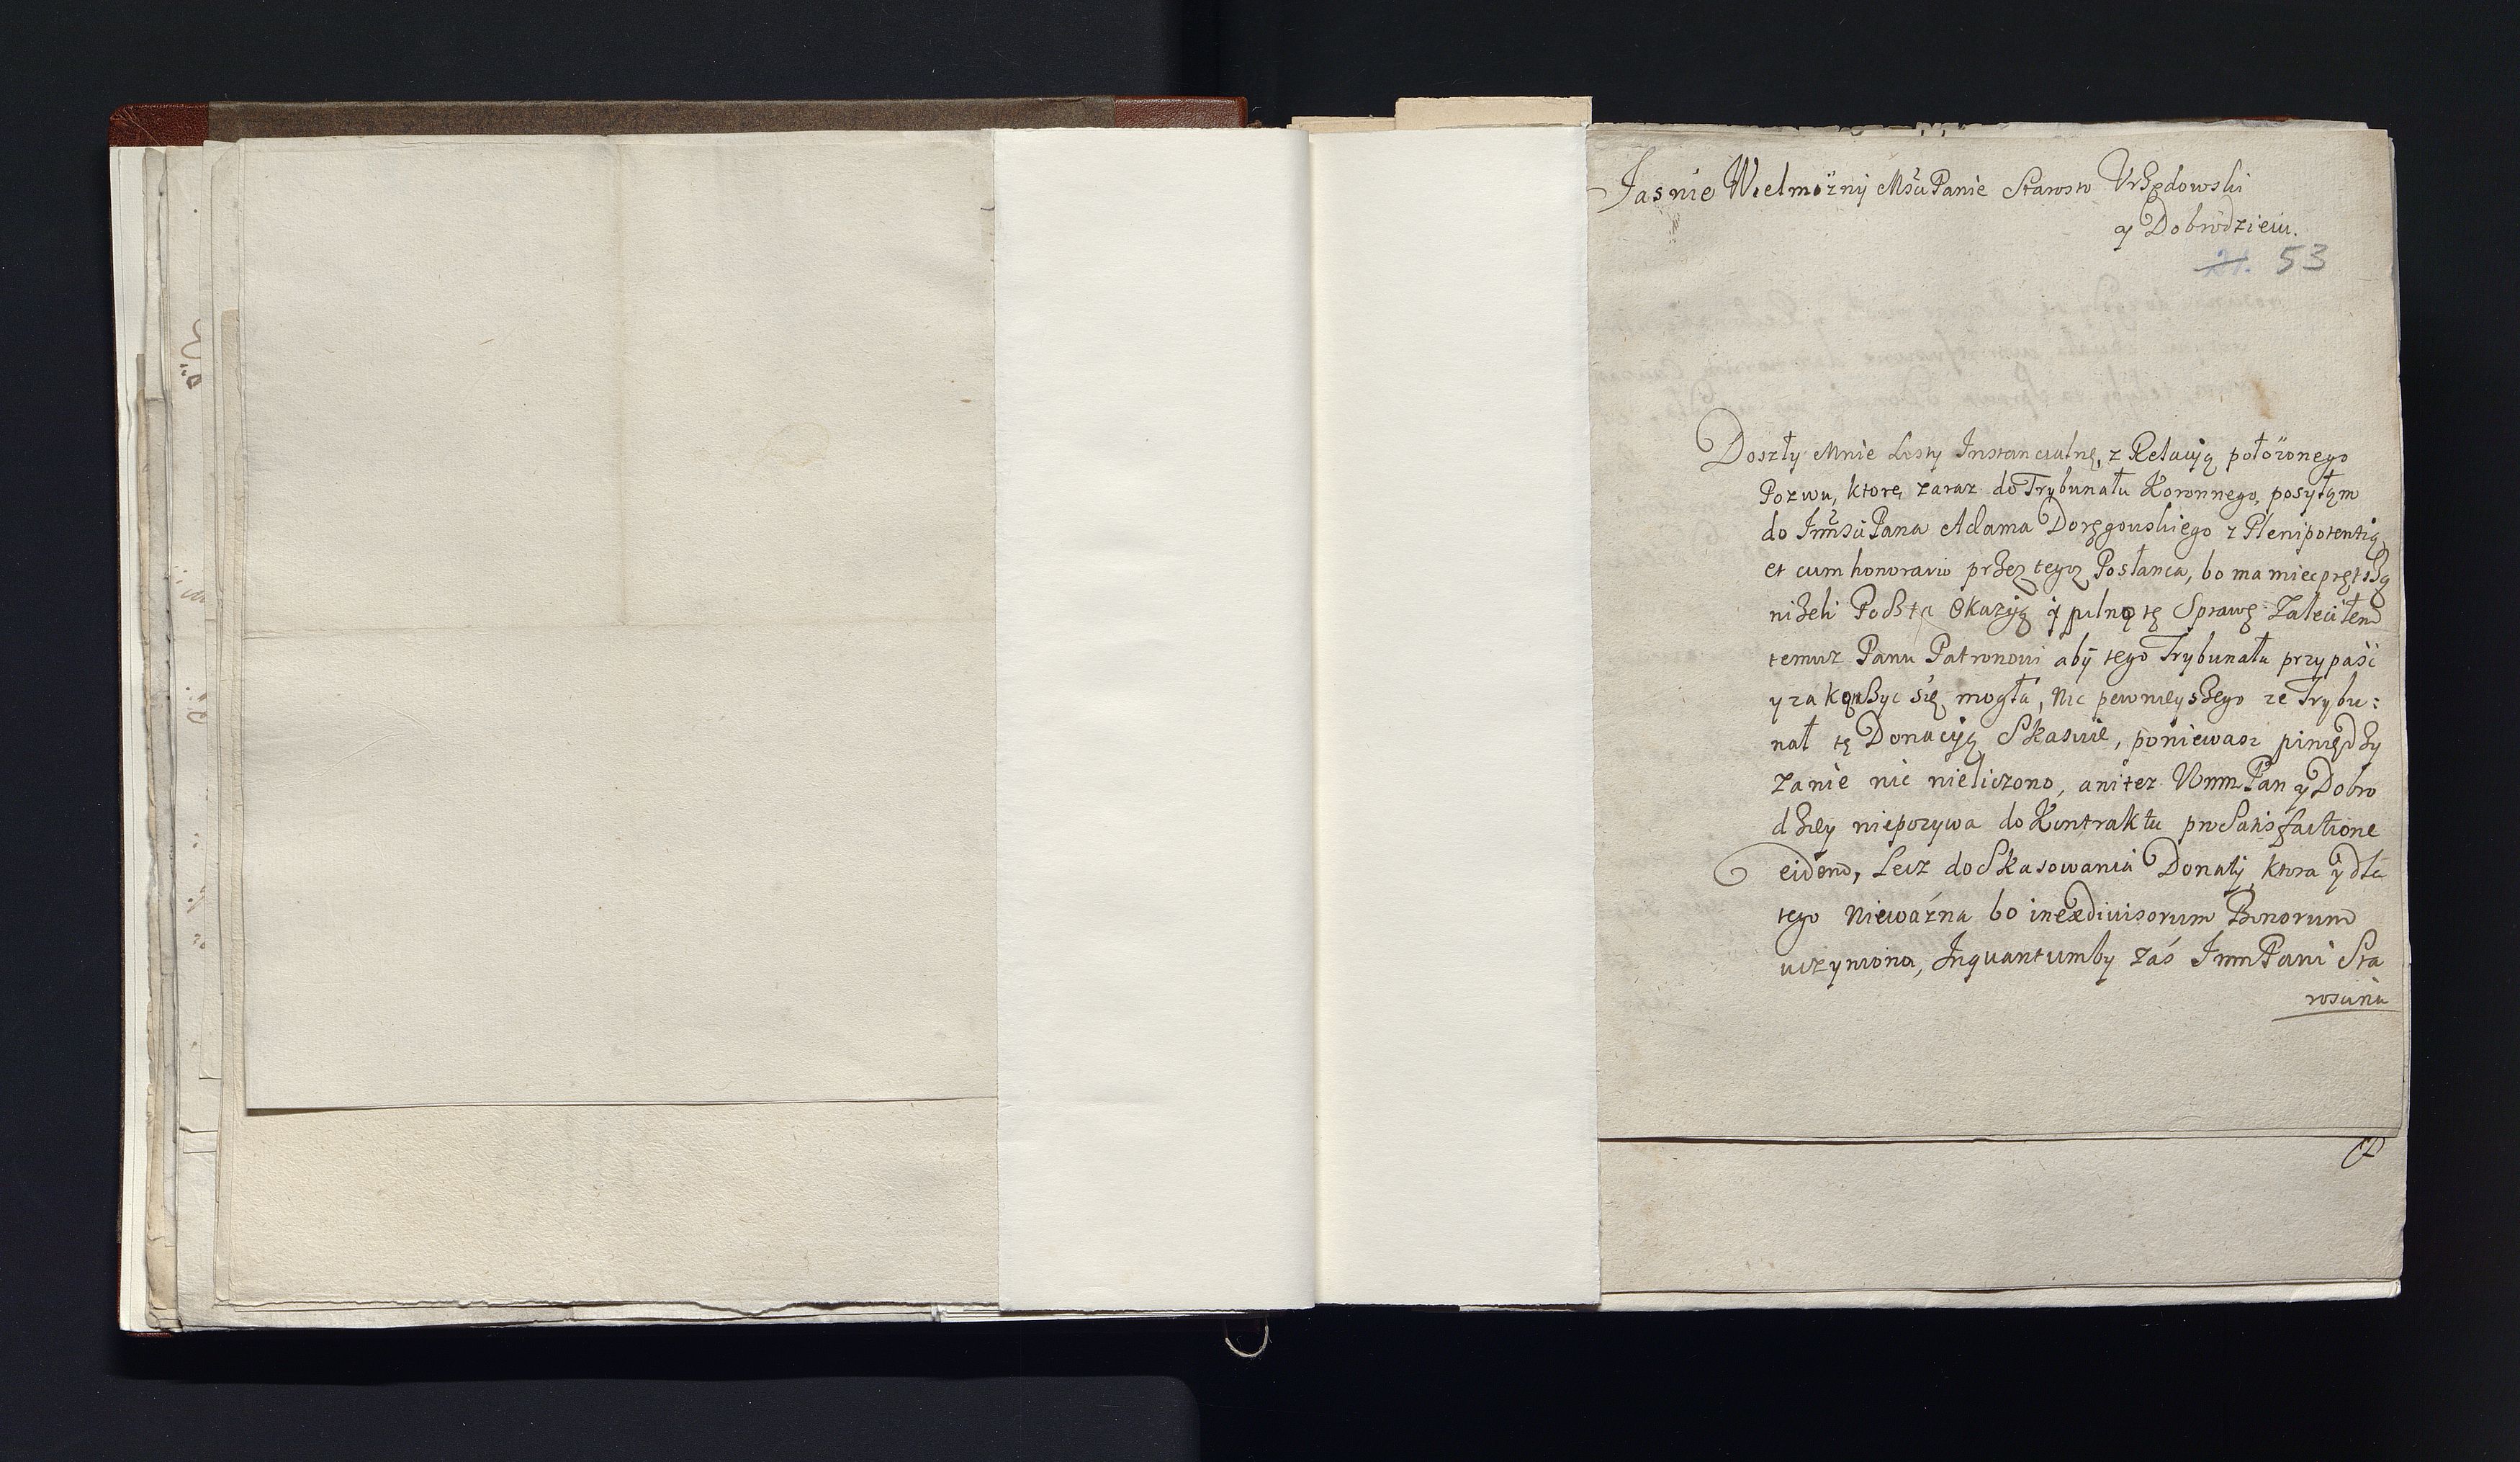 Jasnie Wielmożny MśuPanie Starosto Vrzędowski
y Dobrodzieiu.
21. 53
Doszły Mnie Listy Instancialnę, z Relacyą położonego
Pozwu, ktorę zaraz do Trybunału Koronnego, posyłąm
do JmśuPana Adama Doręgowskiego z Plenipotentią
et cum honorario przez tegoz Posłanca, bo ma miec prętszą
niżeli Poszta Okazyią y pilno tę Sprawę Zaleciłem
temuz Panu Patronowi aby tego Trybunału przypaść
y zakonszyc się mogła, nic pewnieyszego ze Trybu:
nał tę Donacyią Skasuie, poniewasz pinędzy
Zanie nic nieliczono, anitez WmmPan y Dobro
dziey niepozywa do Kontraktu pro Satisfactione
eidem, Lecz do Skasowania Donatÿ, ktora y dla
tego Nieważna bo inexdiuisorum Bonorum
uczyniona, Inquantumby zaś JmmPani Sta
rosuina